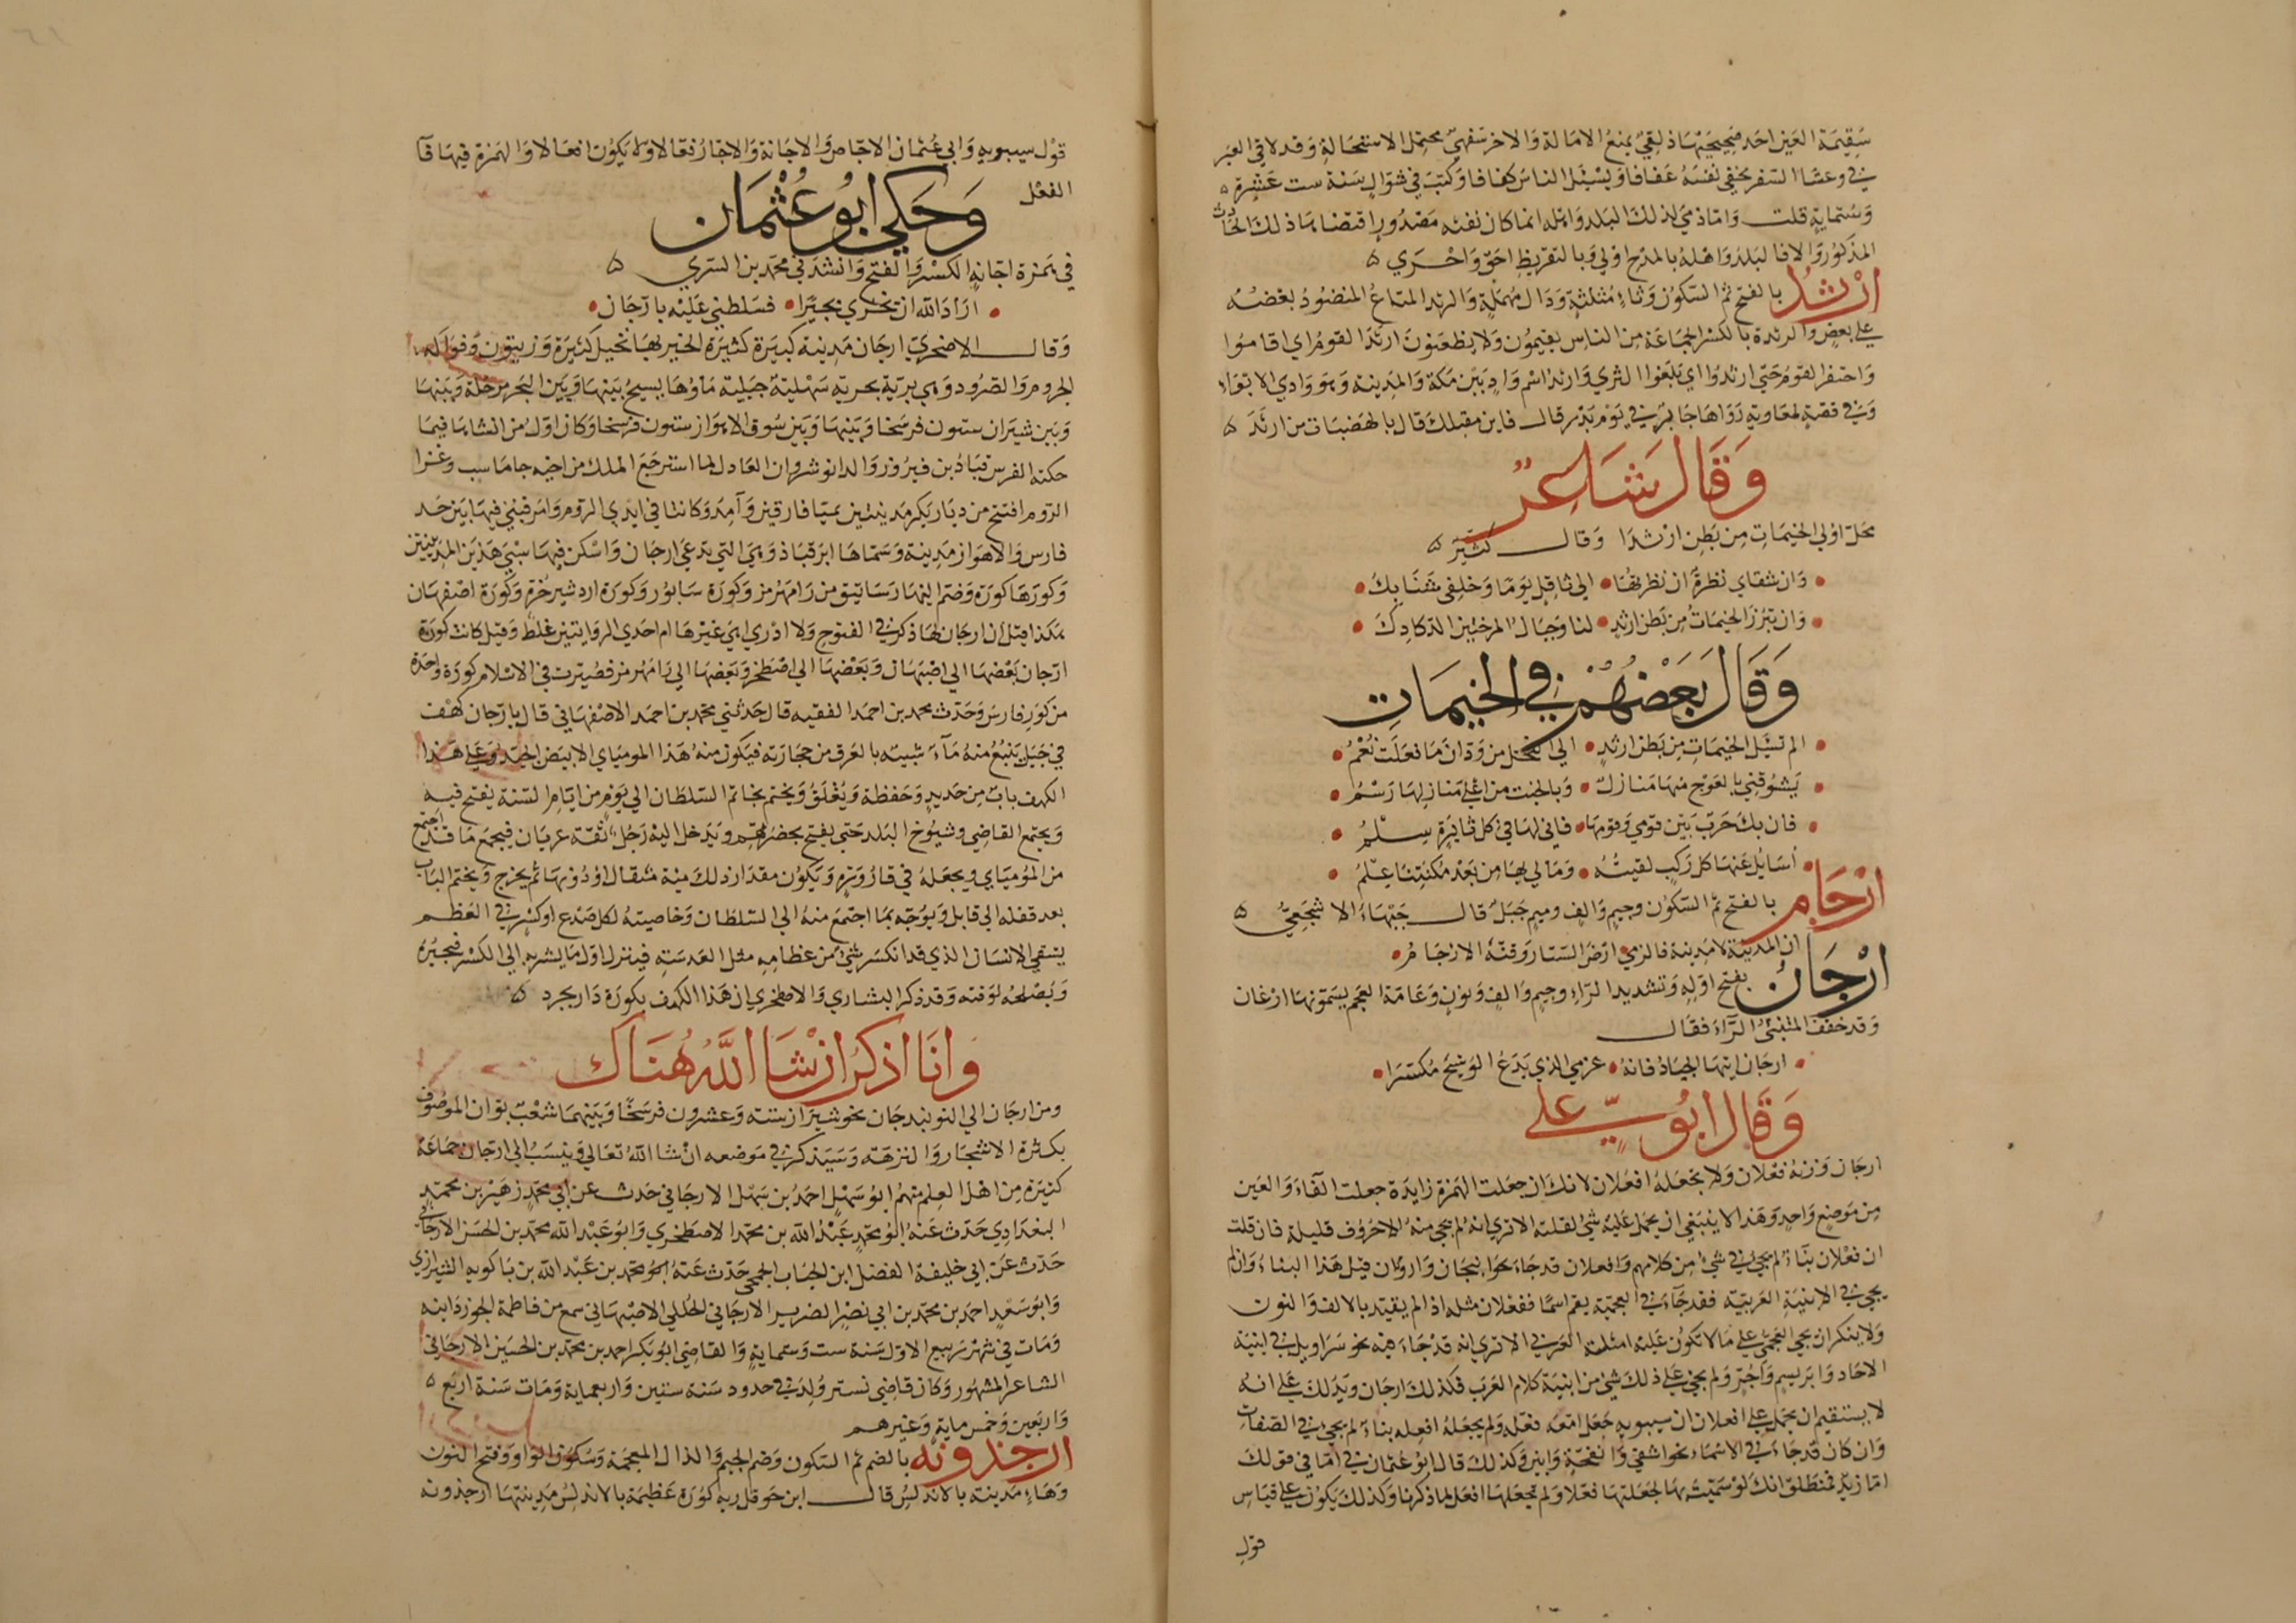 سقيمة العين احد صحيحيها ذلقي يمنع الامالة والاخر شفهي محتمل الاستحالة وقد لاقي العبر
في وعثا السفر يخفي نفسه عفافا ويسئل الناس كفافا وكتب في شوال سنة ست عشرة
وستماية قلت واما ذمي لذلك البلد واهله انما كان نفثه مصدور اقتضاها ذلك الحادث
المذكور والا فالبلد واهله بالمدح اولي وبالتقريظ احق واحري
ارثد بالفتح ثم السكون وثاء مثلثة ودال مهملة والرثد المتاع المنضود بعضه
علي بعض والرثدة بالكسر الجماعة من الناس يقيمون ولا يظعنون ارثد القوم اي اقاموا
واحتفر القوم حتي ارثدوا اي بلغوا الثري وارثد اسم واد بين مكة والمدينة وهو وادي الابواء
وفي قصة لمعاوية رواها جابر في يوم بدر قال فاين مقيلك قال بالهضبات من ارثد
وقال شاعر
محل اولي الخيمات من بطن ارثدا وقال كثير
وان شفاي نظرة ان نظرتها الي ثاقل يوما وخلفي شنايك
وان تبرز الخيمات من بطن ارثد لنا وجبال المرختين الدكادك
وقال بعضهم في الخيمات
الم تسئل الخيمات من بطن ارثد الي النخل من ودان ما فعلت نعم
يشوقني بالعوج منها منازل وبالخبت من اعلي منازلها رسم
فان يك حرب بين قومي وقومها فاني لها في كل نايرة سلم
اسايل عنها كل ركب لقيته ومالي بها من بعد مكثتنا علم
ارجام بالفتح ثم السكون وجيم والف وميم جبل قال جبيهاء الاشجعي
ان المدينة لا مدينة فالزمي ارض الستار وقنة الارجام
ارجان بفتح اوله وتشديد الراء وجيم والف ونون وعامة العجم يسمونها ارغان
وقد خفف المتنبي الراء فقال
ارجان ايتها الجياد فانه عزمي الذي يدع الوشيج مكسرا
وقال ابو علي
ارجان وزنه فعلان ولا تجعله افعلان لانك ان جعلت الهمزة زايدة جعلت الفاء والعين
من موضع واحد وهذا لا ينبغي ان يحمل عليه شئ لقلته الا تري انه لم يجي منه الا حروف قليلة فان قلت
ان فعلان بناء لم يجئ في شئ من كلامهم وافعلان قد جاء نحو انبجان وارونان قيل هذا البناء وان لم
يجي في الابنية العربية فقد جاء في العجمية بقم اسما ففعلان مثله اذا لم يقيد بالالف والنون
ولا ينكر ان يجي العجمي علي ما لا تكون عليه امثلة العربي الا تري انه قد جاء فيه نحو سراويل في ابنية
الاحاد وابريسم واجر ولم يجي علي ذلك شئ من ابنية كلام العرب فكذلك ارجان ويدلك علي انه
لا يستقيم ان يحمل علي افعلان ان سيبويه جعل امعه فعله ولم يجعله افعله بناء لم يجئ في الصفات
وان كان قد جاء في الاسماء نحو اشفي وانفحة وابين وكذلك قال ابو عثمان في اما في قولك
اما زيد فمنطلق انك لو سميت بها لجعلتها فعلا ولم تجعلها افعل لما ذكرنا وكذلك يكون علي قياس
قول
قول سيبويه وابي عثمان الاجاص والاجانة والاجار فعالا ولا يكون افعالا والهمزة فيها فآ
الفعل
وحكي ابو عثمان
في همزة اجانة الكسر والفتح وانشدني محمد بن السري
اراد الله ان تخزي بجيرا فسلطني عليه بارجان
وقال الاصخري ارجان مدينة كبيرة كثيرة الخير لها نخيل كثيرة وزيتون وفواكه
الجروم والصرود وهي برية بحرية سهلية جبلية ماؤها يسيح بينها وبين البحر مرحلة وبينها
وبين شيراز ستون فرسخا وبينها وبين سوق الاهواز ستون فرسخا وكان اول من انشاها فيما
حكته الفرس قباذ بن فيروز والد انوشروان العادل لما استرجع الملك من اخيه جاماسب وغزا
الروم افتتح من ديار بكر مدينتين ميافارقين وآمد وكانتا في ايدي الروم وامر فبني فيها بين حد
فارس والاهواز مدينة وسماها ابرقباذ وهي التي تدعي ارجان واسكن فيها سبي هذين المدينتين
وكورها كورة وضم اليها رساتيق من رامهرمز وكورة سابور وكورة اردشير خرة وكورة اصفهان
هكذا قيل ان ارجان لها ذكر في الفتوح ولا ادري اهي غيرها ام احدي الروايتين غلط وقيل كانت كورة
ارجان بعضها الي اصبهان وبعضها الي اصطخر وبعضها الي رامهرمز فصيرت في الاسلام كورة واحدة
من كور فارس وحدث محمد بن احمد الفقيه قال حدثني محمد بن احمد الاصفهاني قال بارجان كهف
في جبل ينبع منه ماء شبيه بالعرق من حجارته فيكون منه هذا الموميای الابيض الجيد وعلي هذا
الكهف باب من حديد وحفظة ويغلق ويختم بخاتم السلطان الي يوم من ايام السنة يفتح فيه
ويجتمع القاضي وشيوخ البلد حتي يفتح بحضرتهم ويدخل اليه رجل ثقة عريان فيجمع ما قد اجتمع
من المومياي ويجعله في قارورة ويكون مقدار ذلك مية مثقال او دونها ثم يخرج ويختم الباب
بعد قفله الي قابل ويوجه بما اجتمع منه الي السلطان وخاصيته لكل صدع او كسر في العظم
يسقي الانسان الذي قد انكسر شئ من عظامه مثل العدسة فينزل اول ما يشربه الي الكسر فيجبره
ويصلحه لوقته وقد ذكر البشاري والاصطخري ان هذا الكهف بكورة دارابجرد
وانا اذكر ان شا الله هناك
ومن ارجان الي النوبندجان نحو شيراز ستة وعشرون فرسخا وبينهما شعب بوان الموصوف
بكثرة الاشجار والنزهة وسيذكر في موضعه ان شا الله تعالي وينسب الي ارجان جماعة
كثيرة من اهل العلم منهم ابو سهل احمد بن سهل الارجاني حدث عن ابي محمد زهير بن محمد
البغدادي حدث عنه ابو محمد عبد الله بن محمد الاصطخري وابو عبد الله محمد بن الحسن الارجاني
حدث عن ابي خليفة الفضل ابن الحباب الجمحي حدث عنه ابو محمد بن عبد الله بن باكويه الشيرازي
وابو سعيد احمد بن محمد بن ابي نصر الضرير الارجاني الجللي الاصبهاني سمع من فاطمة الجوزدانية
ومات في شهر ربيع الاول سنة ست وستماية والقاضي ابو بكر احمد بن محمد بن الحسين الارجاني
الشاعر المشهور وكان قاضي تستر ولد في حدود سنة ستين واربعماية ومات سنة اربع
واربعين وخمس ماية وغيرهم
ارجذونه بالضم ثم السكون وضم الجيم والذال المعجمة وسكون الواو وفتح النون
وهاء مدينة بالاندلس قال ابن حوقل ريه كورة عظيمة بالاندلس مدينتها ارجذونة